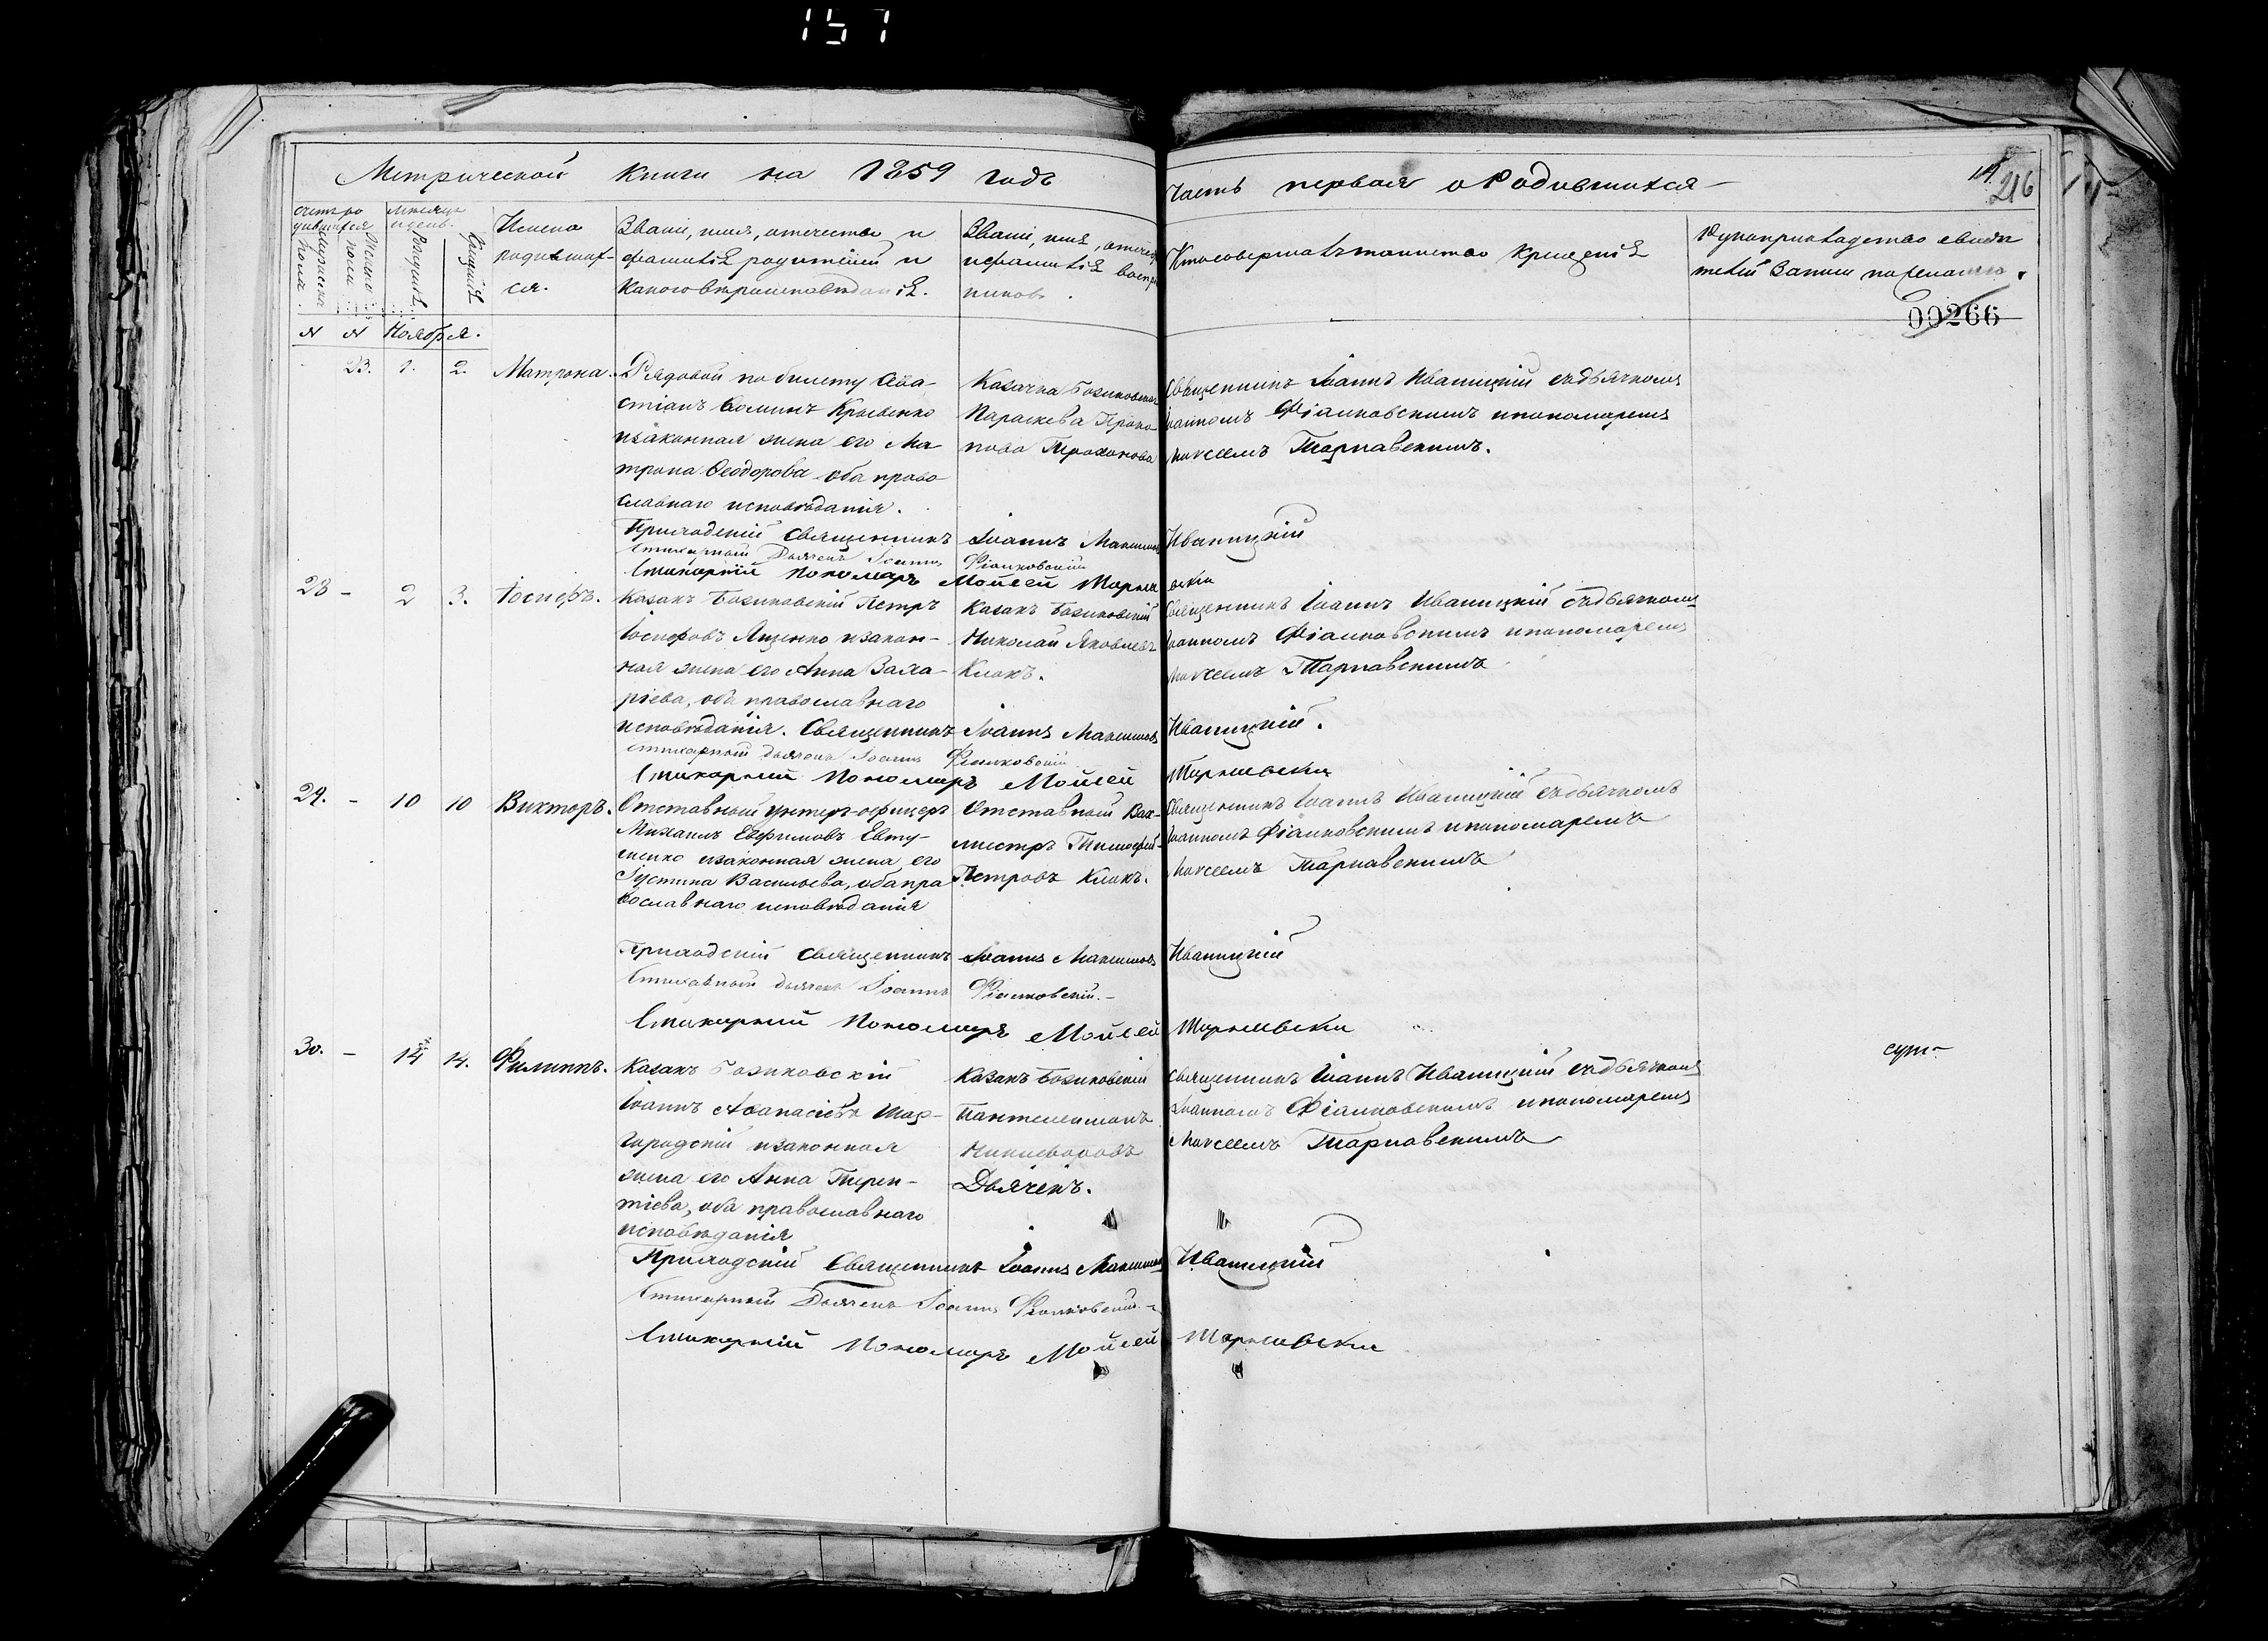 157
Метрической книги на 1859 годъ
часть первая о родившихся
216
Счетъ родившихся
Мужеска пола
Женска пола
Месяцъ и день
Рождения
Крещения
Имена
родивших-
ся.
Званіе, имя, отечество и
фамилія родителей и
какого вероисповеданія.
Званіе, имя, отечест
и фамилія воспр
никовъ.
Кто совершалъ таинство крещенія
Рукоприкладство свиде
телей записи по желанію.
00266
N N Ноября.
23. 1. 2. Матрона.
Рядовой по билету Сева-
стіанъ Фоминъ Кривенко
и законная жена его Ма-
трона Феодорова оба право
славнаго исповѣданія.
Казачка Божковская
Параскева Проко-
пова Трохимова
Священникъ Іоаннъ Иваницкій съ дьячкомъ
Іоанномъ Фіалковскимъ и пономаремъ
Моисеемъ Тарнавскимъ.
Приходскій Священникъ Іоаннъ Максимовъ Иваницкій
Стихарный Дьячекъ Іоаннъ Фіалковскій
Стихарній Пономаръ Мойсей Тарна вски
28 - 2 3. Іосифъ.
Казакъ Божковскій Петръ
Іосифовъ Яценко и закон-
ная жена его Анна Заха-
ріева, оба православнаго
исповѣданія.
Казакъ Божковскій
Николай Яковлевъ
Клокъ.
Священникъ Іоаннъ Иваницкій съ дьячкомъ
Іоанномъ Фіалковскимъ и пономаремъ
Моисеемъ Тарнавскимъ
Священникъ Іоаннъ Максимовъ Иваницкій.
Стихарный Дьячекъ Іоаннъ Фіалковскій
Стихарній Пономаръ Мойсей Тарнавски
29. - 10 10 Викторъ.
Отставный унтеръ-офицеръ
Михаилъ Евфимовъ Евту-
шенко и законная жена его
Іустина Васильева, оба пра
вославнаго исповѣданія
Отставный Вах-
мистръ Тимофей
Петровъ Клокъ.
Священникъ Іоаннъ Иваницкій съ дьячкомъ
Іоанномъ Фіалковскимъ и пономаремъ
Моисеемъ Тарнавскимъ
Приходскій Священникъ Іоаннъ Максимовъ Иваницкій
Стихарный Дьячекъ Іоаннъ Фіалковскій.-
Стихарній Пономаръ Мойсей Тарнавски
30. - 14 14. Филиппъ.
Казакъ Божковскій
Іоаннъ Афанасіевъ Шар-
городскій и законная
жена его Анна Терен-
тіева, оба православнаго
исповѣданія
Казакъ Божковскій
Пантелеимонъ
Никифоровъ
Дьяченъ.
Священникъ Іоаннъ Иваницкій съ дьячкомъ
Іоанномъ Фіалковскимъ и пономаремъ
Моисеемъ Тарнавскимъ
Приходскій Священникъ Іоаннъ Максимовъ Иваницкій
Стихарный Дьячекъ Іоаннъ Фіалковскій.-
Стихарній Пономаръ Мойсей Тарнавски